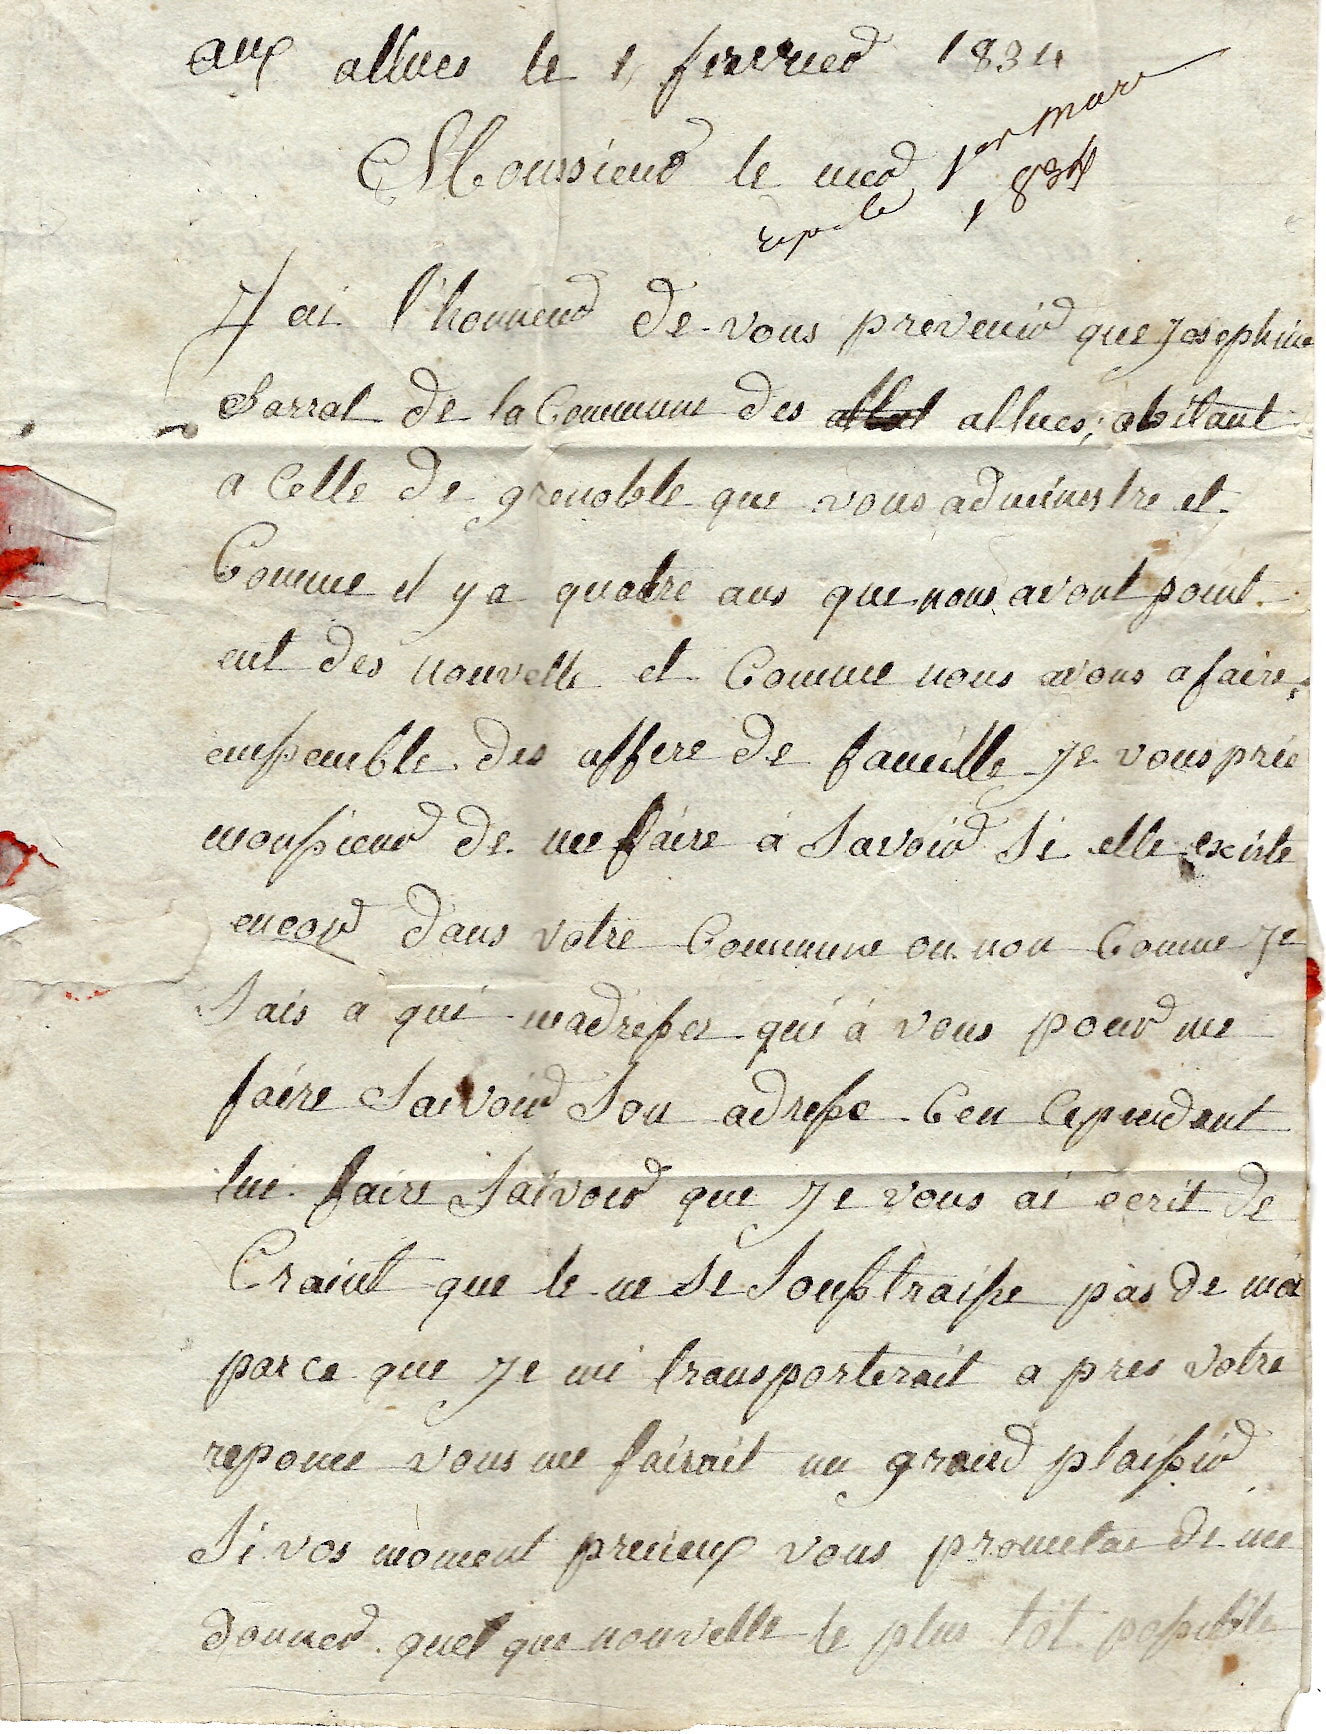 aux allues le 1, fevrier 1834
Monssieur le mer
repe le 1er mars
1834
J ai l'honneur de vous prevenir que Josephine
Barral de la Commune des allues, abitant
a Celle de grenoble que vous administre et
Comme il y a quatre ans que nous avont point
eut des nouvelle et Comme nous avons a faire
enssemble des affere de famille Je vous prie
monssieur de me faire à Savoir Si elle existe
encor dans votre Commune ou non Comme Je
Sais a qui madresser qui à vous pour me
faire Saivoir Son adresse Cen Cependant
lui faire Saivoir que Je vous ai ecrit de
Craint que le ne Se Soustraisse pas de moi
parce que Je mi transporterait a pres votre
reponce vous me fairait un grand plaissir
Si vos moment precieux vous prometai de me
donner quel que nouvelle le plus tôt possible